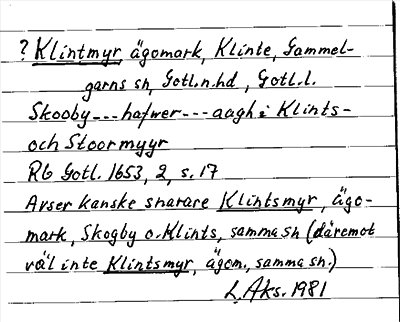 ? Klintmyr, ägomark, Klinte, Gammel-
garns sn, Gotl.n.hd, Gotl.l.
Skooby---hafwer---aagh i Klints-
och Stoormyyr
RG Gotl. 1653, 2, s. 17
Avser kanske snarare Klintsmyr, ägo-
mark, Skogby o. Klints, samma sn (däremot
väl inte Klintsmyr, ägom., samma sn.)
L. Aks. 1981